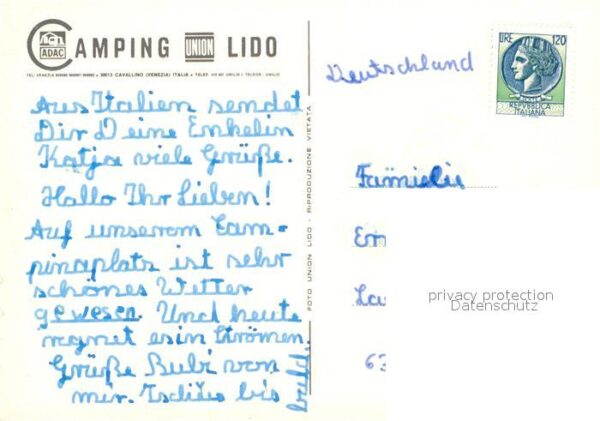 CAMPING UNION LIDO
ADAC
30013 CAVALLINO (VENEZIA) ITALIA
Aus Italien sendet
Dir Deine Enkelin
Katja viele Grüße.
Hallo Ihr Lieben!
Auf unserem Cam=
pinaplatz ist sehr
schönes Wetter
gewesen. Und heute
regnet es in Strömen.
Grüße Bubi von
mir. Tschüs bis
bald.
FOTO UNION LIDO - RIPRODUZIONE VIETATA
Deutschland
LIRE 120
REPVBBLICA
ITALIANA
Familie
63
privacy protection
Datenschutz